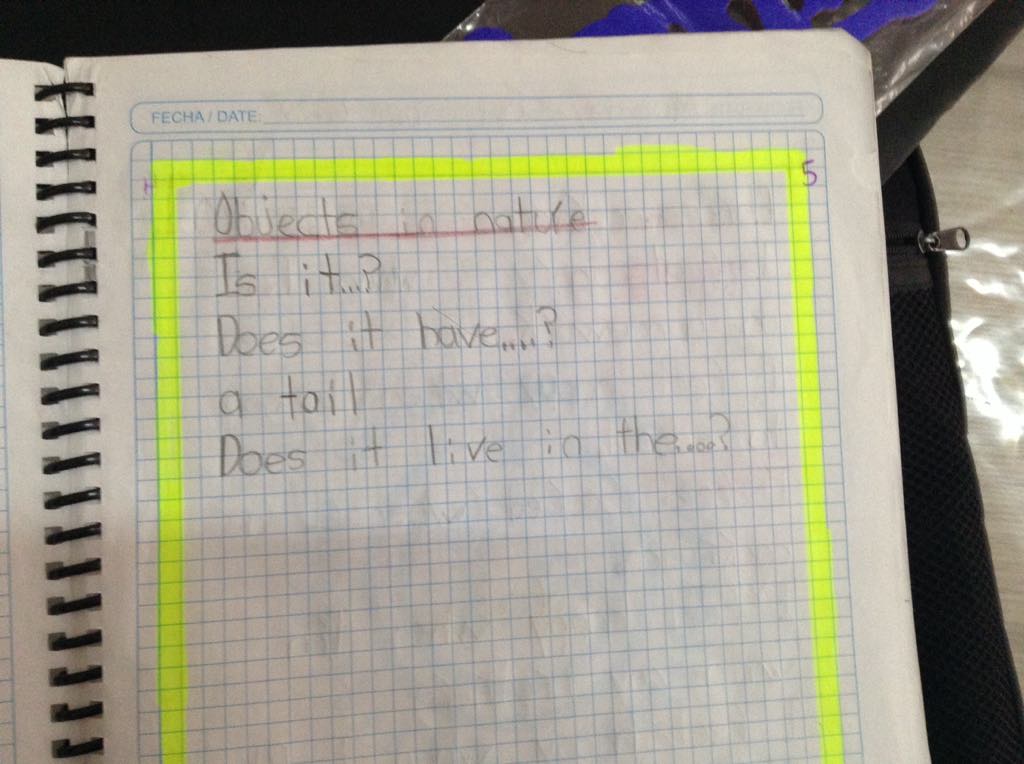 FECHA / DATE:
5
Objects in nature
Is it...?
Does it have....?
a tail
Does it live in the.....?